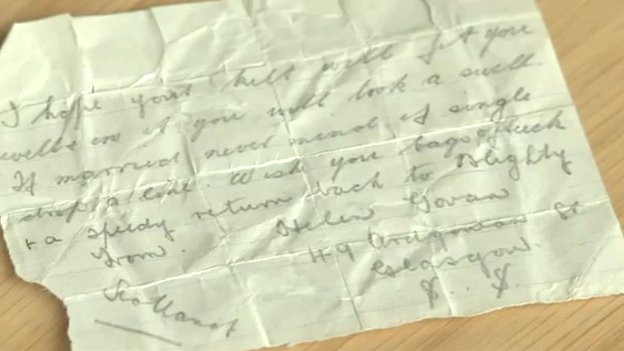 I hope your kilt will fit you
well & in it you will look a swell
If married never mind if single
drop a line. Wish you bags of luck
& a speedy return back to Blighty
From. Helen Govan
49 Ardgowan St.
Glasgow.
Scotland